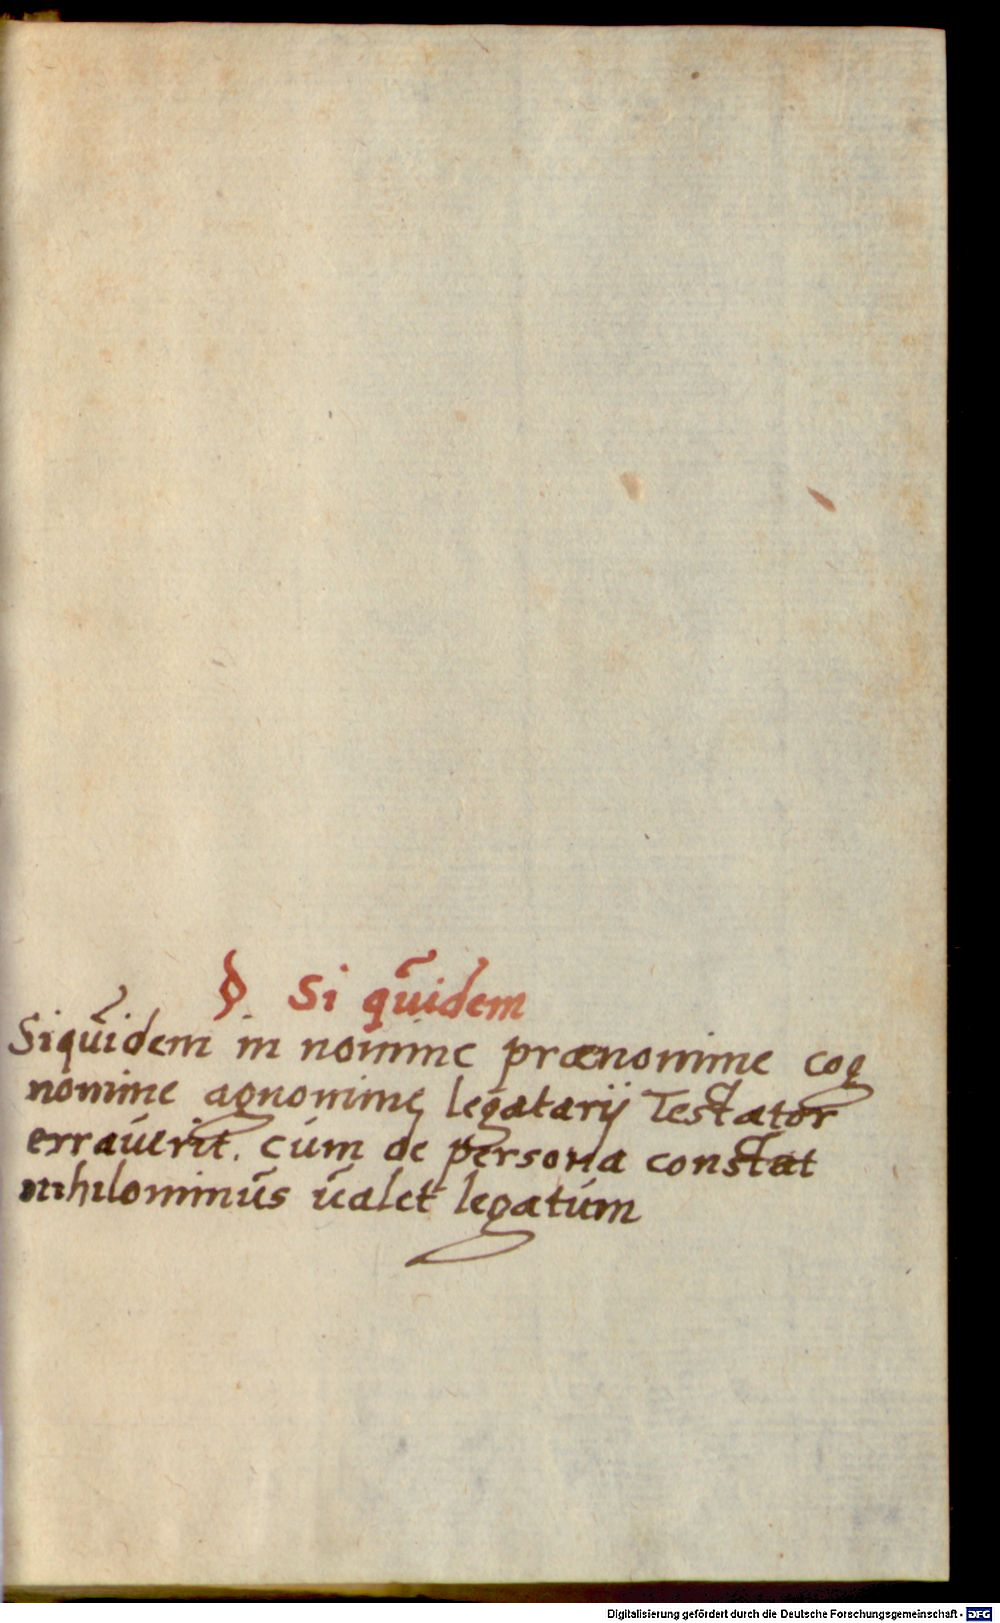 §. Si quidem
Siquidem in nomine prænomine cog
nomine agnomine legatarij Testator
erraverit. cum de persona constat
nihilominus valet legatum
Digitalisierung gefördert durch die Deutsche Forschungsgemeinschaft - DFG